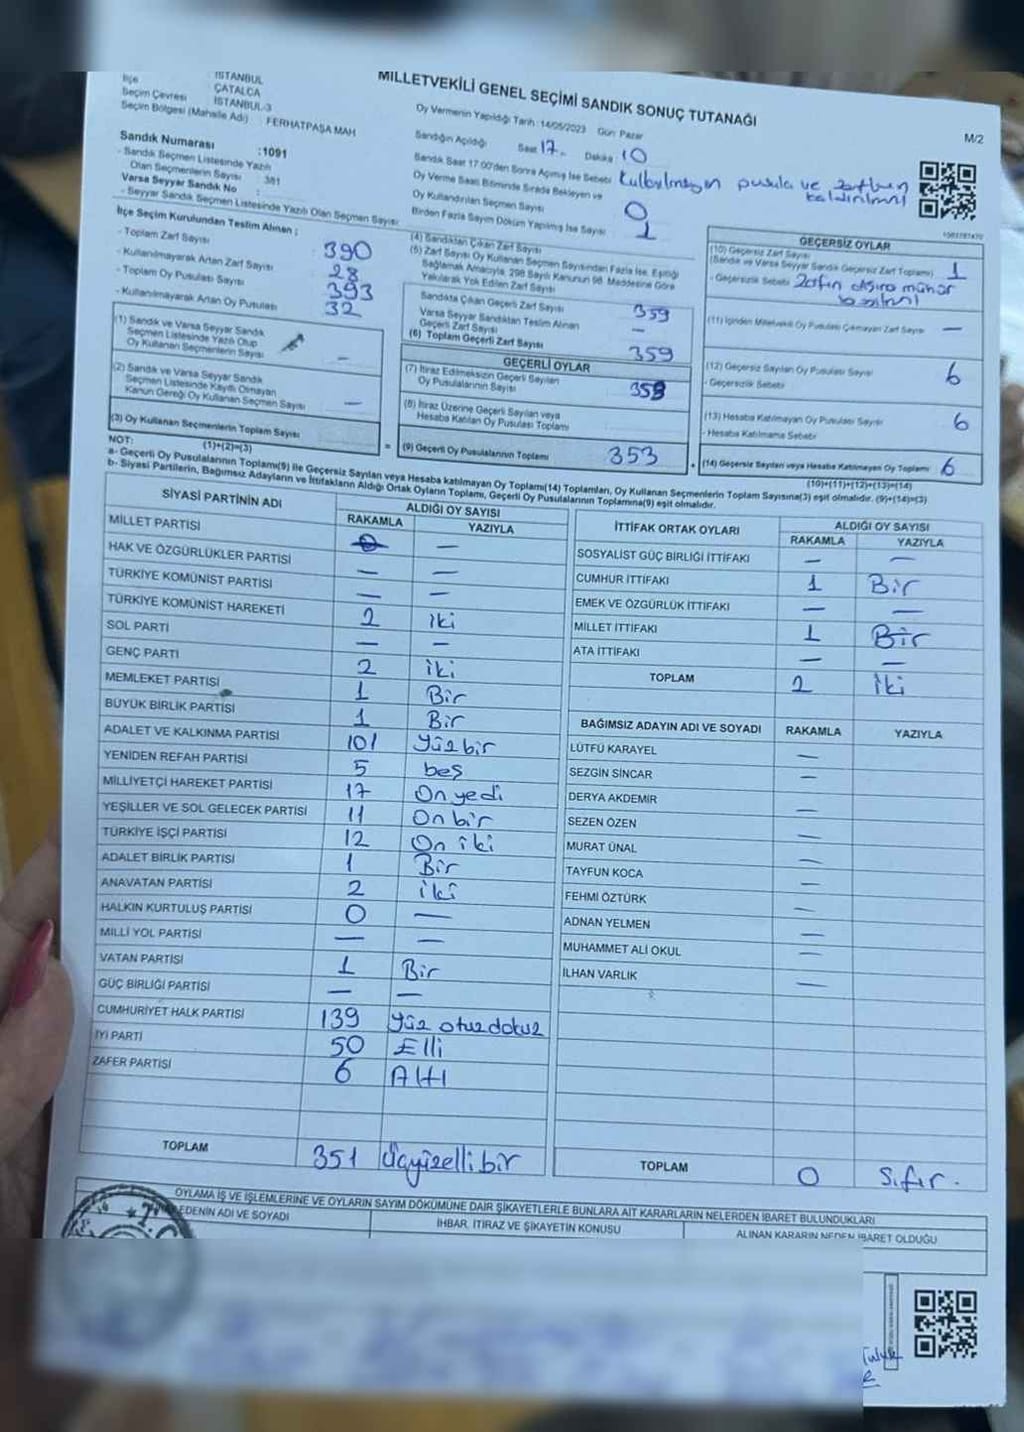 İlçe
İSTANBUL
ÇATALCA
Seçim Çevresi İSTANBUL-3
Seçim Bölgesi (Mahalle Adı) : FERHATPAŞA MAH
MİLLETVEKİLİ GENEL SEÇİMİ SANDIK SONUÇ TUTANAĞI
M/2
Oy Vermenin Yapıldığı Tarih :14/05/2023 Gün: Pazar
Sandık Numarası :1091
- Sandık Seçmen Listesinde Yazılı
Olan Seçmenlerin Sayısı : 381
Varsa Seyyar Sandık No :
- Seyyar Sandık Seçmen Listesinde Yazılı Olan Seçmen Sayısı
Sandığın Açıldığı Saat 17. Dakika 10
Sandık Saat 17.00'den Sonra Açılmış İse Sebebi pusula ve zarfların kaldırılması
Oy Verme Saati Bitiminde Sırada Bekleyen ve
Oy Kullandırılan Seçmen Sayısı 0
Birden Fazla Sayım Döküm Yapılmış İse Sayısı 1
İlçe Seçim Kurulundan Teslim Alınan ;
- Toplam Zarf Sayısı 390
- Kullanılmayarak Artan Zarf Sayısı 28
- Toplam Oy Pusulası Sayısı 393
- Kullanılmayarak Artan Oy Pusulası 32
(1) Sandık ve Varsa Seyyar Sandık
Seçmen Listesinde Yazılı Olup
Oy Kullanan Seçmenlerin Sayısı –
(2) Sandık ve Varsa Seyyar Sandık
Seçmen Listesinde Kayıtlı Olmayan
Kanun Gereği Oy Kullanan Seçmen Sayısı –
(3) Oy Kullanan Seçmenlerin Toplam Sayısı
(1)+(2)=(3)
(4) Sandıktan Çıkan Zarf Sayısı
(5) Zarf Sayısı Oy Kullanan Seçmen Sayısından Fazla İse, Eşitliği
Sağlamak Amacıyla, 298 Sayılı Kanunun 98. Maddesine Göre
Yakılarak Yok Edilen Zarf Sayısı
Sandıkta Çıkan Geçerli Zarf Sayısı 359
Varsa Seyyar Sandıktan Teslim Alınan
Geçerli Zarf Sayısı –
(6) Toplam Geçerli Zarf Sayısı 359
GEÇERLİ OYLAR
(7) İtiraz Edilmeksizin Geçerli Sayılan
Oy Pusulalarının Sayısı 353
(8) İtiraz Üzerine Geçerli Sayılan veya
Hesaba Katılan Oy Pusulası Toplamı
= (9) Geçerli Oy Pusulalarının Toplamı 353
GEÇERSİZ OYLAR
(10) Geçersiz Zarf Sayısı
(Sandık ve Varsa Seyyar Sandık Geçersiz Zarf Toplamı) 1
- Geçersizlik Sebebi: Zarfın dışına mühür
basılması
(11) İçinden Milletvekili Oy Pusulası Çıkmayan Zarf Sayısı –
(12) Geçersiz Sayılan Oy Pusulası Sayısı 6
- Geçersizlik Sebebi:
(13) Hesaba Katılmayan Oy Pusulası Sayısı 6
- Hesaba Katılmama Sebebi:
+ (14) Geçersiz Sayılan veya Hesaba Katılmayan Oy Toplamı 6
(10)+(11)+(12)+(13)=(14)
NOT:
a- Geçerli Oy Pusulalarının Toplamı(9) ile Geçersiz Sayılan veya Hesaba katılmayan Oy Toplamı(14) Toplamları, Oy Kullanan Seçmenlerin Toplam Sayısına(3) eşit olmalıdır. (9)+(14)=(3)
b- Siyasi Partilerin, Bağımsız Adayların ve İttifakların Aldığı Ortak Oyların Toplamı, Geçerli Oy Pusulalarının Toplamına(9) eşit olmalıdır.
SİYASİ PARTİNİN ADI ALDIĞI OY SAYISI
RAKAMLA YAZIYLA
MİLLET PARTİSİ –
HAK VE ÖZGÜRLÜKLER PARTİSİ – –
TÜRKİYE KOMÜNİST PARTİSİ – –
TÜRKİYE KOMÜNİST HAREKETİ 2 iki
SOL PARTİ – –
GENÇ PARTİ 2 iki
MEMLEKET PARTİSİ 1 Bir
BÜYÜK BİRLİK PARTİSİ 1 Bir
ADALET VE KALKINMA PARTİSİ 101 Yüzbir
YENİDEN REFAH PARTİSİ 5 beş
MİLLİYETÇİ HAREKET PARTİSİ 17 On yedi
YEŞİLLER VE SOL GELECEK PARTİSİ 11 On bir
TÜRKİYE İŞÇİ PARTİSİ 12 On iki
ADALET BİRLİK PARTİSİ 1 Bir
ANAVATAN PARTİSİ 2 iki
HALKIN KURTULUŞ PARTİSİ 0 –
MİLLİ YOL PARTİSİ – –
VATAN PARTİSİ 1 Bir
GÜÇ BİRLİĞİ PARTİSİ – –
CUMHURİYET HALK PARTİSİ 139 Yüz otuzdokuz
İYİ PARTİ 50 Elli
ZAFER PARTİSİ 6 Altı
TOPLAM 351 Üçyüzellibir
İTTİFAK ORTAK OYLARI ALDIĞI OY SAYISI
RAKAMLA YAZIYLA
SOSYALİST GÜÇ BİRLİĞİ İTTİFAKI – –
CUMHUR İTTİFAKI 1 Bir
EMEK VE ÖZGÜRLÜK İTTİFAKI – –
MİLLET İTTİFAKI 1 Bir
ATA İTTİFAKI – –
TOPLAM 2 İki
BAĞIMSIZ ADAYIN ADI VE SOYADI RAKAMLA YAZIYLA
LÜTFÜ KARAYEL –
SEZGİN SİNCAR –
DERYA AKDEMİR –
SEZEN ÖZEN –
MURAT ÜNAL –
TAYFUN KOCA –
FEHMİ ÖZTÜRK –
ADNAN YELMEN –
MUHAMMET ALİ OKUL –
İLHAN VARLIK –
TOPLAM 0 Sıfır.
OYLAMA İŞ VE İŞLEMLERİNE VE OYLARIN SAYIM DÖKÜMÜNE DAİR ŞİKAYETLERLE BUNLARA AİT KARARLARIN NELERDEN İBARET BULUNDUKLARI
EDENİN ADI VE SOYADI İHBAR, İTİRAZ VE ŞİKAYETİN KONUSU ALINAN KARARIN NEDEN İBARET OLDUĞU